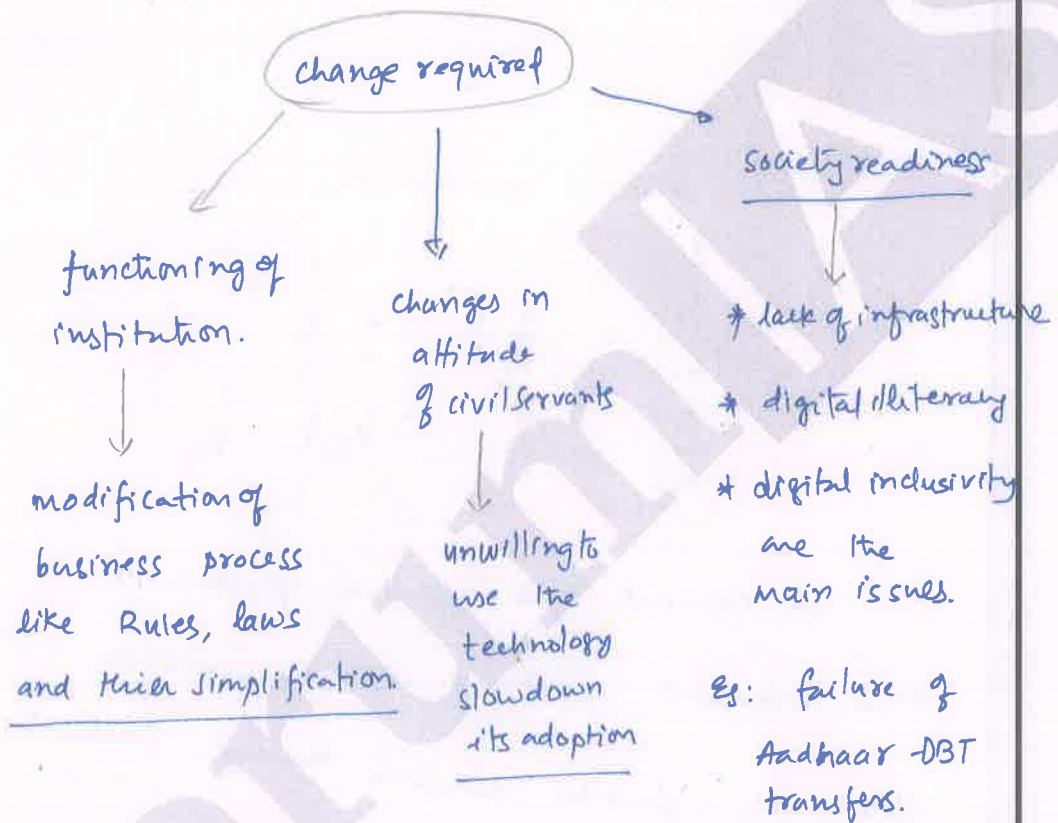 change required
functioning of
institution.
modification of
business process
like Rules, laws
and thier simplification.
changes in
attitude
of civil servants
unwilling to
use the
technology
slowdown
its adoption
society readiness
* lack of infrastructure
* digital illiteracy
* digital inclusivity
are the
main issues.
eg: failure of
Aadhaar-DBT
transfers.